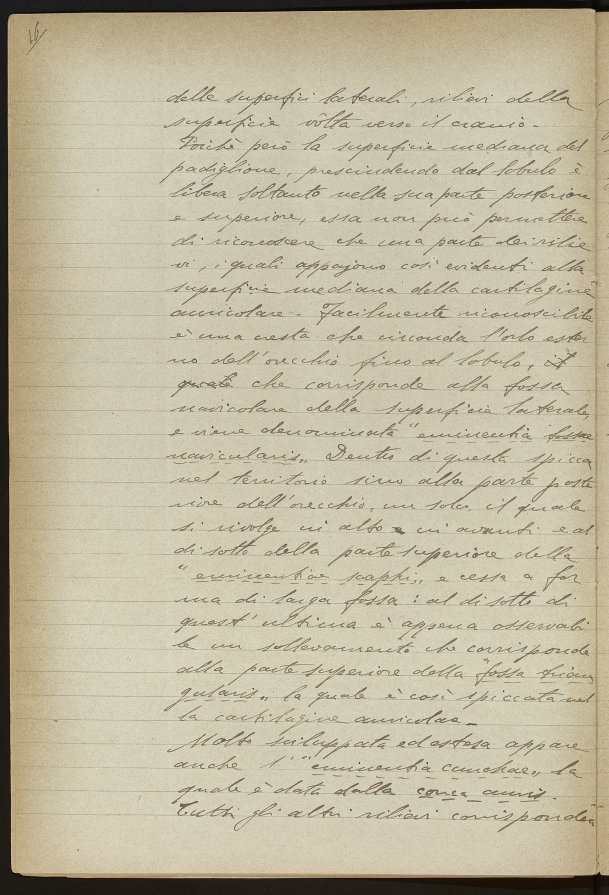 16
delle superfici laterali, rilievi della
superficie vòlta verso il cranio.
Poichè però la superficie mediana del
padiglione, prescindendo dal lobulo è
libera soltanto nella sua parte posteriore
e superiore, essa non può permettere
di riconoscere che una parte dei rilie
vi, i quali appajono così evidenti alla
superficie mediana della cartilagine
auricolare. Facilmente riconoscibile
è una cresta che circonda l'orlo ester
no dell'orecchio fino al lobulo, il
quale che corrisponde alla fossa
navicolare della superficie laterale,
e viene denominata "eminentia fossae
navicularis„ Dentro di questa spicca
nel territorio sino alla parte poste
riore dell'orecchio, un solco, il quale
si rivolge in alto e in avanti e al
di sotto della parte superiore della
"eminentiae scaphi„ e cessa a for
ma di larga fossa: al di sotto di
quest'ultima è appena osservabi
le un sollevamento che corrisponde
alla parte superiore della "fossa trian
gularis„ la quale è così spiccata nel
la cartilagine auricolae.
Molto sviluppata ed estesa appare
anche l'"eminentia conchae„ la
quale è data dalla conca auris.
Tutti gli altri rilievi corrisponden